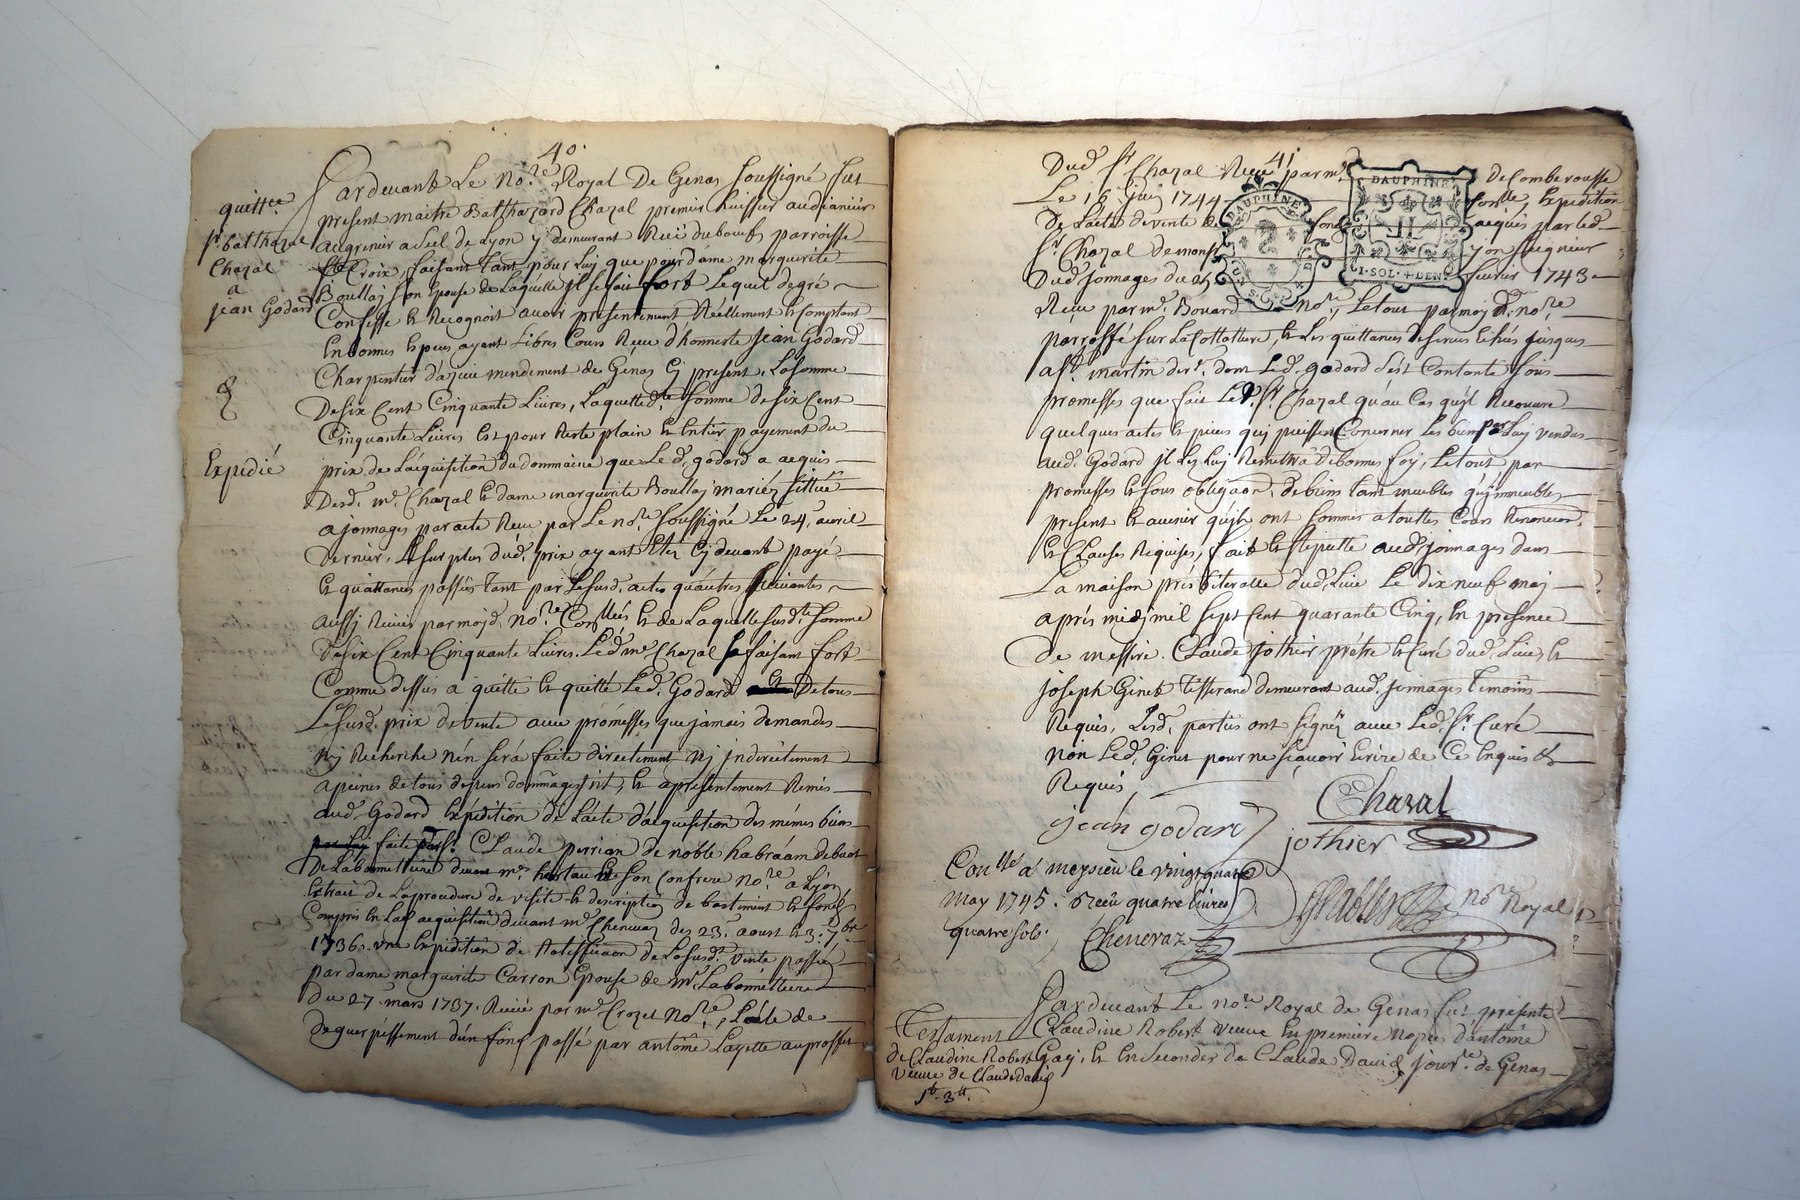 40.
quittce
sr. balthazar
Chazal
a
jean Godard
Expedié
Pardevant Le nore Royal De Genas soussigné fut
present maitre Balthazard Chazal premier huissier audiancier
au grenier a sel de Lyon y demeurant Rüe du boeuf parroisse
Ste Croix, faisant tant pour Luy que pour dame marguerite
Boullay son Epouse de Laquelle jl se fait fort Lequel de gré
Confesse et Recognoit avoir presentement Réellement et Comptant
En bonnes Especes ayant Libres Cours Receu d'honneste jean Godard
Charpentier d'azieu mendement de Genas Cy present, La somme
De six Cent Cinquante Livres, Laquelle de. somme de six Cent
Cinquante Livres Est pour Reste plain et Entier payement du
prix de L'acquisition du dommaine que Led. godard a acquis
Desd. me. Chazal et dame marguerite Boullay mariéz sittué
a jonnages par acte Receu par Le nore. soussigné Le 24. avril
Dernier, Le surplus dud. prix ayant Eté Cy devant payé
Et quittances passées tant par Le susd. actes qu'autres suivantes
aussy Recües par moyd. nore. Conllés et de Laquelle susd.te somme
De six Cent Cinquante Livres. Led. me Chazal se faisant fort
Comme dessus a quitté et quitte Led. Godard De tous
Le susd. prix de vente avec promesses que jamais demandes
ny Recherche n'en sera faite directement ny jndirectement
a peines de tous despens dommages jnt, et a presentement Remis
aud. Godard Expedition de L'acte d'acquisition des mêmes biens
faite par sr. Claude perrion de noble habraam debuat
De Labonnettiere devant me. et son Confrere nore. a Lyon
Extrait de La procedure de visite et description de bastiment et fonds
Compris En Lad. acquisition devant me. Chenevaz des 23. aoust et 3. 7bre
1736. une Expedition de Ratiffication de La susd. vente passée
par dame marguerite Carron Epouse de mr. Labonnettiere
du 27. mars 1737. Recüe par me. Crozet nore, L'acte de
deguerpissement d'un fonds passé par antoine Layette au proffit
41
Dud. sr. Chazal Receu par me. De Comberousse
Le 16 juin 1744 Conlle, Expedition
De L'acte de vente de fonds acquis par led.
sr. Chazal de monsr. yon seigneur
Dud. jonnages du 25 fevrier 1743
Receu par me. Bouard nore., Le tout par moy d. nore.
parroffé sur La Cottature, et Les quittances de servis Echus jusques
a st. martin der. dont Led. godard s'est Contanté sous
promesses que fait Led. sr. Chazal qu'au Cas qu'jl Recouvre
quelques actes et pieces quj puissent Concerner Les biens par Luy vendus
aud. Godard jl Les Luy Remettra de bonnes foy, Le tout par
promesses et sous obligaon. de biens tant meubles qu'jmmeubles
present et avenir qu'jls ont sommis a touttes Cours Renoncaon.
Et Clauses Requises, fait et stipullé aud. jonnages dans
La maison presbiteralle dud. Lieu Le dix neuf may
aprés midy mil sept cent quarante Cinq, En presence
De messire. Claude jothier prétre et Curé dud. Lieu, et
joseph Ginet Tisserand demeurant aud. jonnages temoins
Requis, Lesd. parties ont signéz avec Led. sr. Curé
non Led. Ginet pour ne sçavoir Ecrire de Ce Enquis &
Requis,
Chazal
jean godard
jothier
Conllé a meysieu le vingt quatre
may 1745. Receu quatre livres
quatre sols.
Chenevaz
nore Royal
Testament
de Claudine Robert
veuve de Claude David
3lt.
Pardevant Le nore Royal de Genas fut presente
Claudine Robert veuve En premiere nopces d'antoine
Gay, et En secondes de Claude David jourre. de Genas
DAUPHINÉ
DAUPHINE
1. SOL. 4 DEN.